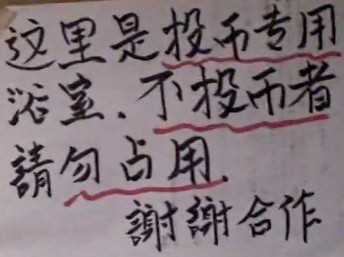 这里是投币专用
浴室.不投币者
請勿占用.
謝謝合作